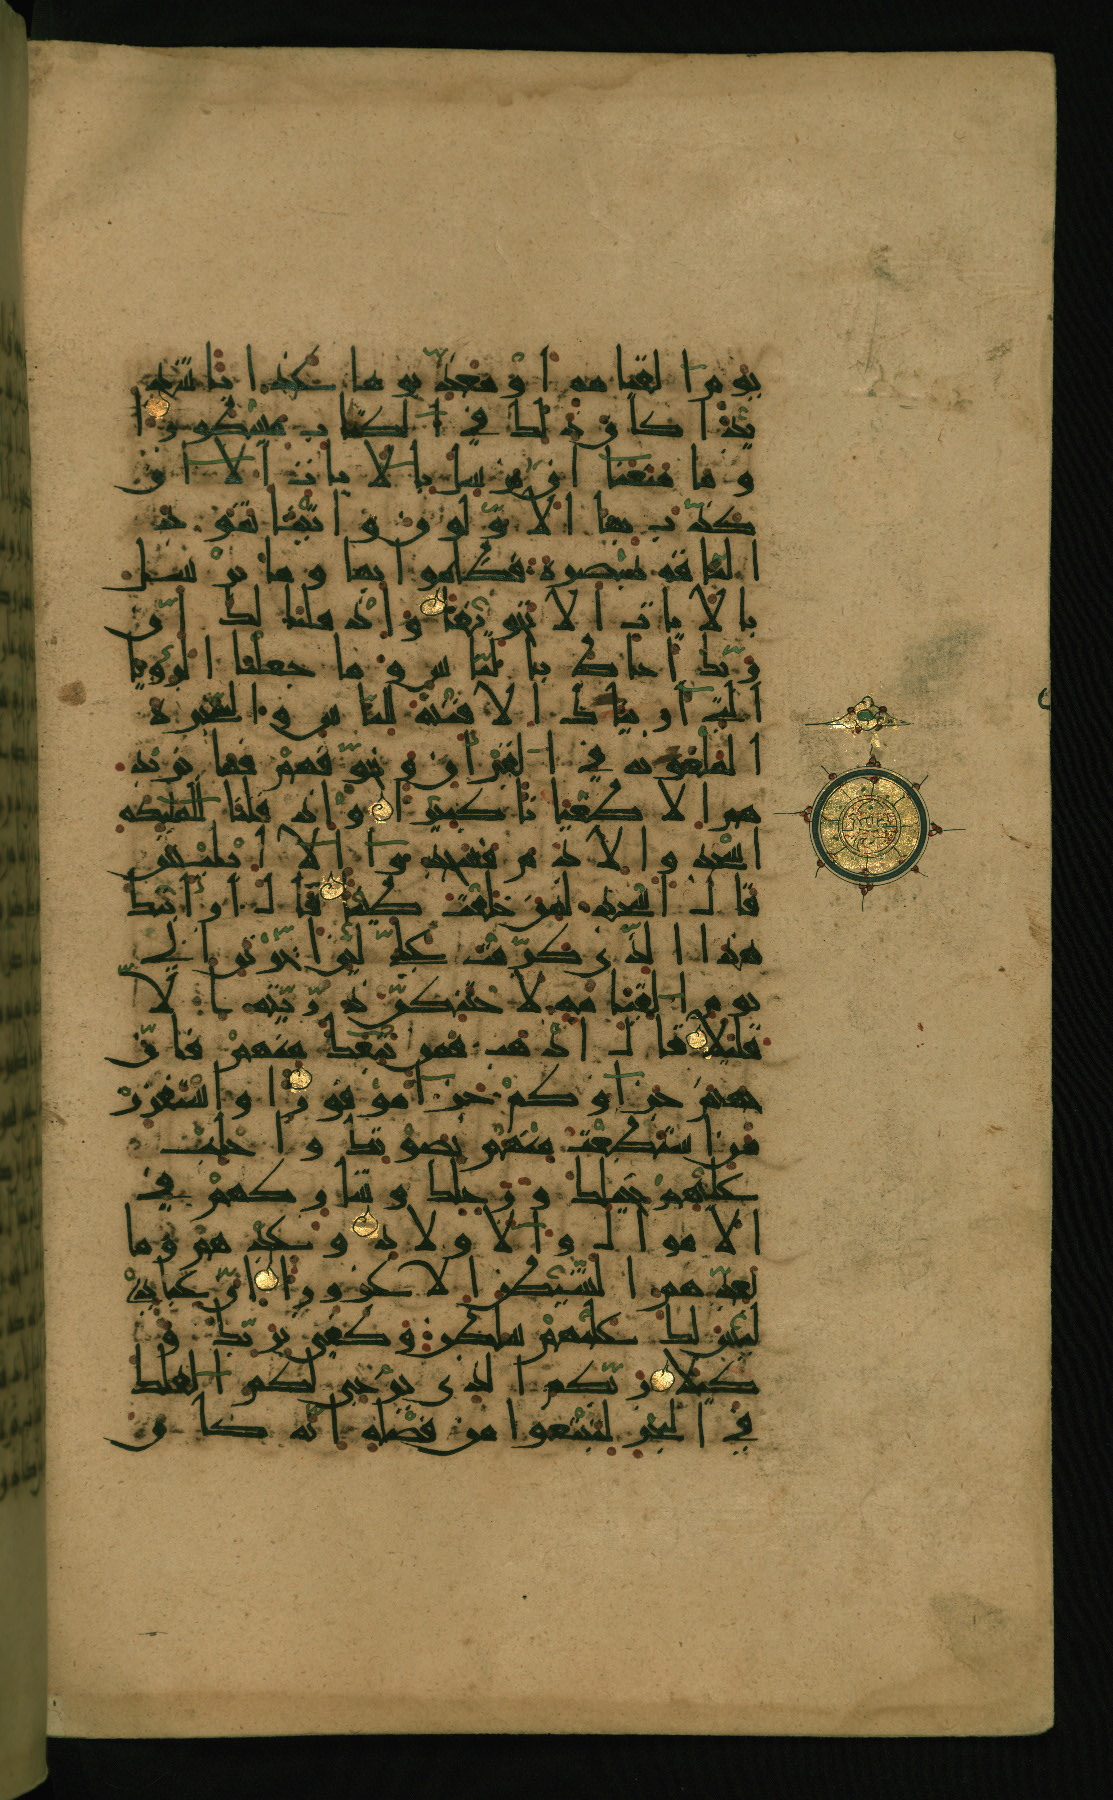 يوم القيامة او معذبوها عذابا شد
يدا كان ذلك في الكتاب مسطورا
وما منعنا ان نرسل بالايات الا ان
كذب بها الاولون واتينا ثمود
الناقة مبصرة فظلموا بها وما نرسل
بالايات الا تخويفا واذ قلنا لك ان
ربك احاط بالناس وما جعلنا الرؤيا
التي اريناك الا فتنة للناس والشجرة
الملعونة في القران ونخوفهم فما يزيد
هم الا طغيانا كبيرا واذ قلنا للملئكة
اسجدوا لادم فسجدوا الا ابليس
قال ااسجد لمن خلقت طينا قال ارايتك
هذا الذي كرمت علي لئن اخرتن الى
يوم القيامة لاحتنكن ذريته الا
قليلا قال اذهب فمن تبعك منهم فان
جهنم جزاوكم جزاء موفورا واستفزز
من استطعت منهم بصوتك واجلب
عليهم بخيلك ورجلك وشاركهم في
الاموال والاولاد وعدهم وما
يعدهم الشيطن الا غرورا ان عبادي
ليس لك عليهم سلطن وكفى بربك و
كيلا ربكم الذي يزجي لكم الفلك
في البحر لتبتغوا من فضله انه كان